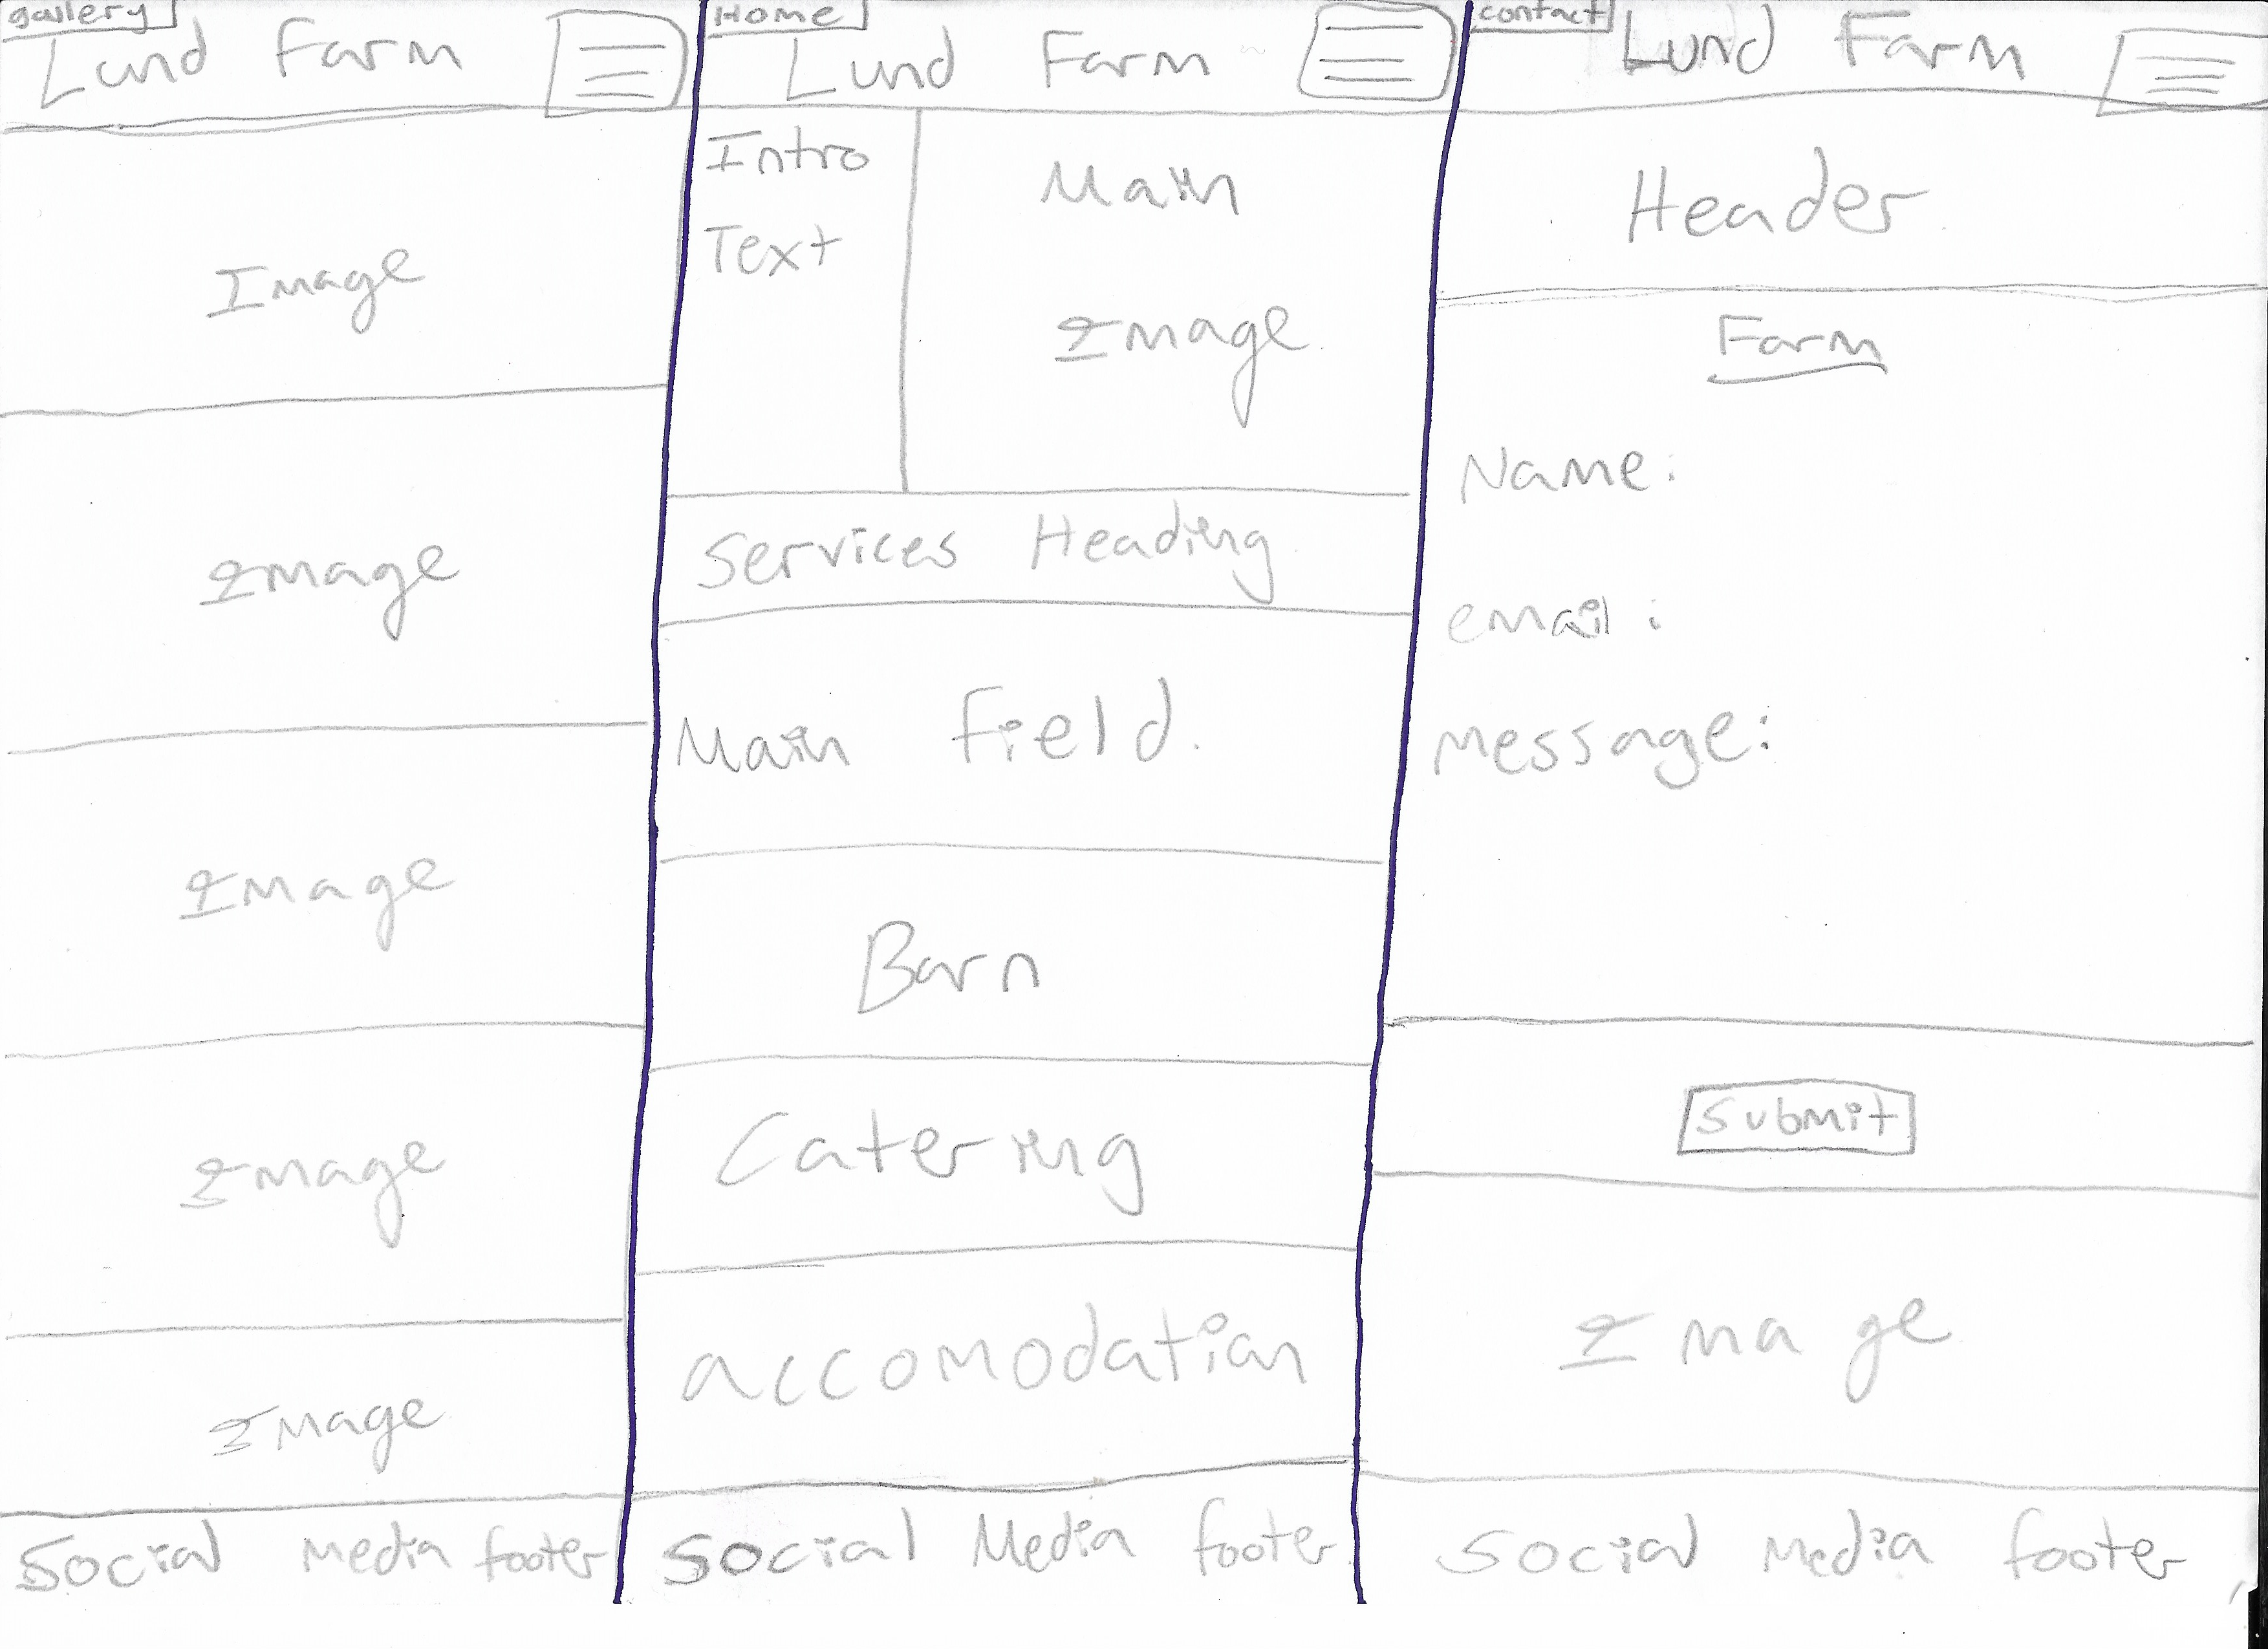 gallery
Lund Farm
Image
Image
Image
Image
Image
Social Media footer
Home
Lund Farm
Intro
Text
Main
Image
Services Heading
Main Field.
Barn
Catering
accomodation
Social Media footer
contact
Lund Farm
Header
Farm
Name:
email:
Message:
Submit
Image
Social Media footer